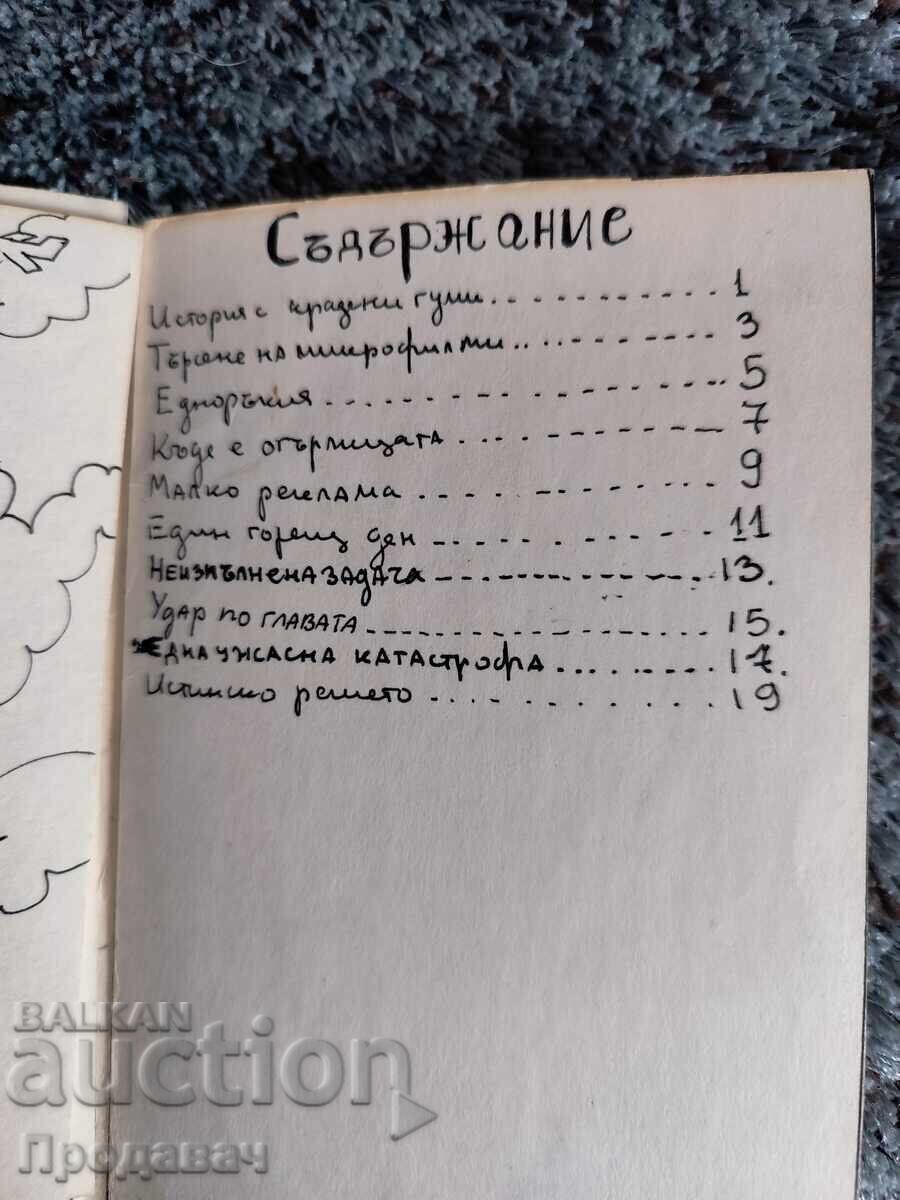 Съдържание
История с крадени гуми.. - - - - - - - . . 1
Търсене на микрофилми. . .. - - - - - - 3
Едноръкия - - - . . - - - - - - - - - - - - 5
Къде е огърлицата . . . - - - - - - - - 7
Малко реклама . . . . - - - - - - - 9
Един горещ ден - - - . . . - - - - - 11
Неизпълнена задача - - - - - - - - - - - 13.
Удар по главата - - - - - - - - - - - - - - 15.
Една ужасна катастрофа . . . . . . . . 17.
Истинско решето . . . . . . . . . . 19
BALKAN
auction
Продавач